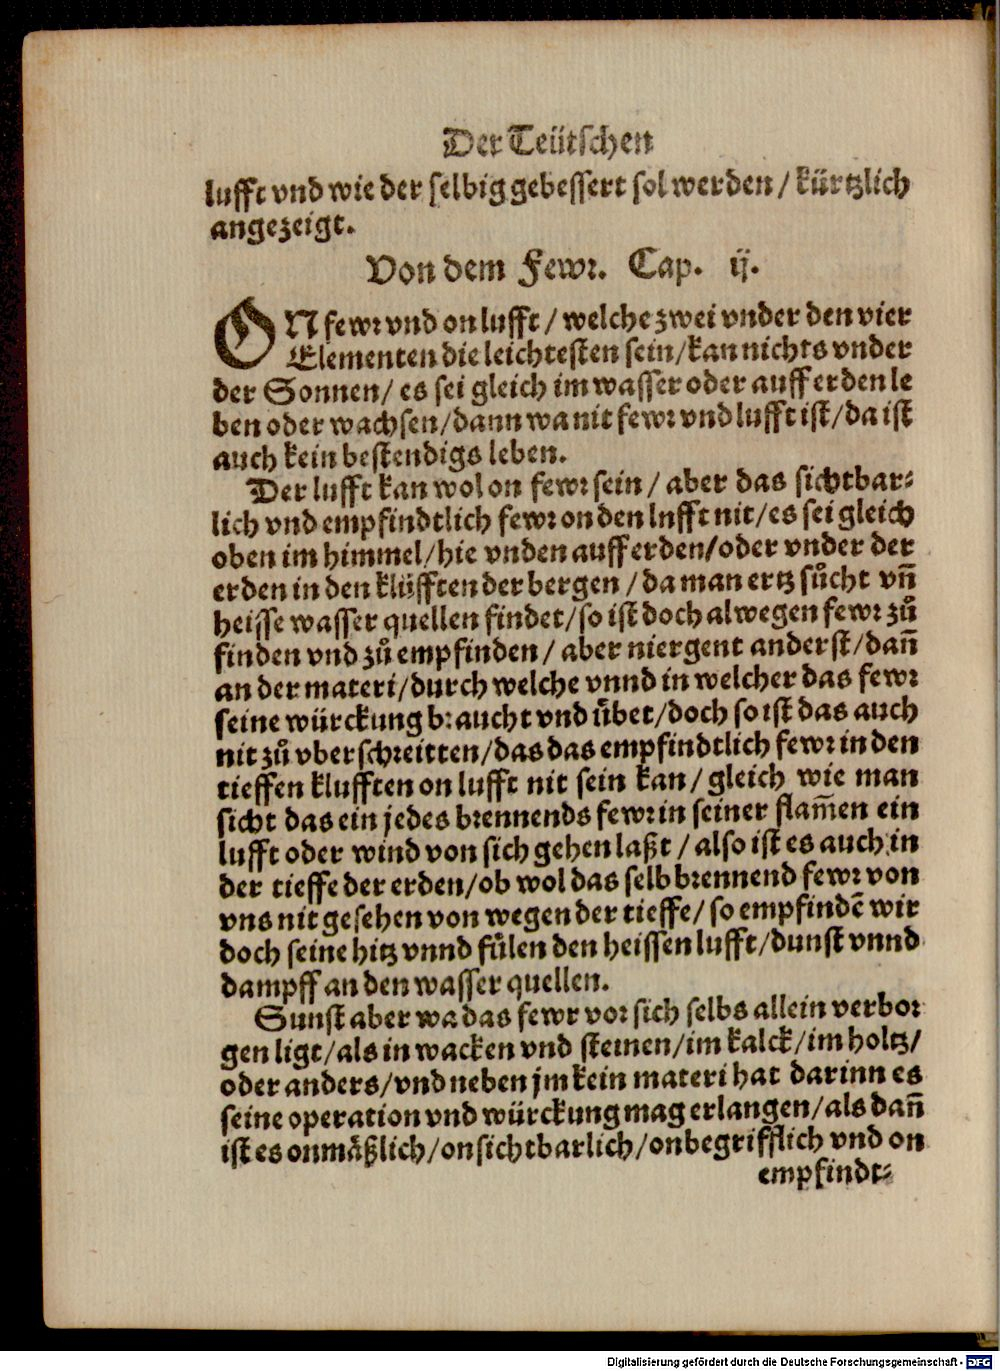 Der Teütschen
lufft vnd wie der selbig gebessert sol werden / kürtzlich
angezeigt.
Von dem Fewr. Cap. ij.
ON fewr vnd on lufft / welche zwei vnder den vier
Elementen die leichtesten sein / kan nichts vnder
der Sonnen / es sei gleich im wasser oder auff erden le
ben oder wachsen / dann wa nit fewr vnd lufft ist / da ist
auch kein bestendigs leben.
Der lufft kan wol on fewr sein / aber das sichtbar⸗
lich vnd empfindtlich fewr on den lnfft nit / es sei gleich
oben im himmel / hie vnden auff erden / oder vnder der
erden in den klüfften der bergen / da man ertz sůcht vñ
heisse wasser quellen findet / so ist doch alwegen fewr zů
finden vnd zů empfinden / aber niergent anderst / dañ
an der materi / durch welche vnnd in welcher das fewr
seine würckung braucht vnd übet / doch so ist das auch
nit zů vberschreitten / das das empfindtlich fewr in den
tieffen klufften on lufft nit sein kan / gleich wie man
sicht das ein jedes brennends fewr in seiner flam̃en ein
lufft oder wind von sich gehen laßt / also ist es auch in
der tieffe der erden / ob wol das selb brennend fewr von
vns nit gesehen von wegen der tieffe / so empfindẽ wir
doch seine hitz vnnd fülen den heissen lufft / dunst vnnd
dampff an den wasser quellen.
Sunst aber wa das fewr vor sich selbs allein verbor
gen ligt / als in wacken vnd steinen / im kalck / im holtz /
oder anders / vnd neben jm kein materi hat darinn es
seine operation vnd würckung mag erlangen / als dañ
ist es onmäßlich / onsichtbarlich / onbegrifflich vnd on
empfindt⸗
Digitalisierung gefördert durch die Deutsche Forschungsgemeinschaft - DFG